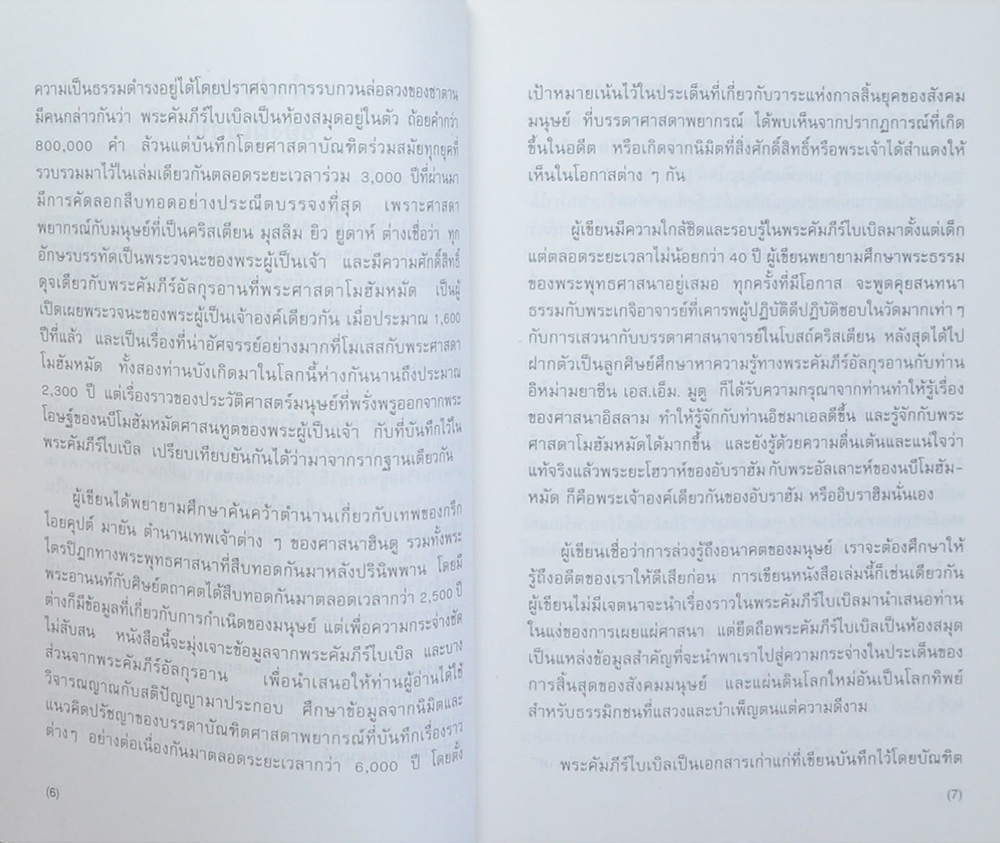 ความเป็นธรรมดำรงอยู่ได้โดยปราศจากการรบกวนล่อลวงของซาตาน
มีคนกล่าวกันว่า พระคัมภีร์ไบเบิลเป็นห้องสมุดอยู่ในตัว ถ้อยคำกว่า
800,000 คำ ล้วนแต่บันทึกโดยศาสดาบัณฑิตร่วมสมัยทุกยุคที่
รวบรวมมาไว้ในเล่มเดียวกันตลอดระยะเวลาร่วม 3,000 ปีที่ผ่านมา
มีการคัดลอกสืบทอดอย่างประณีตบรรจงที่สุด เพราะศาสดา
พยากรณ์กับมนุษย์ที่เป็นคริสเตียน มุสลิม ยิว ยูดาห์ ต่างเชื่อว่า ทุก
อักษรบรรทัดเป็นพระวจนะของพระผู้เป็นเจ้า และมีความศักดิ์สิทธิ์
ดุจเดียวกับพระคัมภีร์อัลกุรอานที่พระศาสดาโมฮัมหมัด เป็นผู้
เปิดเผยพระวจนะของพระผู้เป็นเจ้าองค์เดียวกัน เมื่อประมาณ 1,600
ปีที่แล้ว และเป็นเรื่องที่น่าอัศจรรย์อย่างมากที่โมเสสกับพระศาสดา
โมฮัมหมัด ทั้งสองท่านบังเกิดมาในโลกนี้ห่างกันนานถึงประมาณ
2,300 ปี แต่เรื่องราวของประวัติศาสตร์มนุษย์ที่พรั่งพรูออกจากพระ
โอษฐ์ของนบีโมฮัมหมัดศาสนทูตของพระผู้เป็นเจ้า กับที่บันทึกไว้ใน
พระคัมภีร์ไบเบิล เปรียบเทียบยันกันได้ว่ามาจากรากฐานเดียวกัน
ผู้เขียนได้พยายามศึกษาค้นคว้าตำนานเกี่ยวกับเทพของกรีก
ไอยคุปต์ มายัน ตำนานเทพเจ้าต่าง ๆ ของศาสนาฮินดู รวมทั้งพระ
ไตรปิฎกทางพระพุทธศาสนาที่สืบทอดกันมาหลังปรินิพพาน โดยมี
พระอานนท์กับศิษย์ตถาคตได้สืบทอดกันมาตลอดเวลากว่า 2,500 ปี
ต่างก็มีข้อมูลที่เกี่ยวกับการกำเนิดของมนุษย์ แต่เพื่อความกระจ่างชัด
ไม่สับสน หนังสือนี้จะมุ่งเจาะข้อมูลจากพระคัมภีร์ไบเบิล และบาง
ส่วนจากพระคัมภีร์อัลกุรอาน เพื่อนำเสนอให้ท่านผู้อ่านได้ใช้
วิจารณญาณกับสติปัญญามาประกอบ ศึกษาข้อมูลจากนิมิตและ
แนวคิดปรัชญาของบรรดาบัณฑิตศาสดาพยากรณ์ที่บันทึกเรื่องราว
ต่างๆ อย่างต่อเนื่องกันมาตลอดระยะเวลากว่า 6,000 ปี โดยตั้ง
(6)
เป้าหมายเน้นไว้ในประเด็นที่เกี่ยวกับวาระแห่งกาลสิ้นยุคของสังคม
มนุษย์ ที่บรรดาศาสดาพยากรณ์ ได้พบเห็นจากปรากฏการณ์ที่เกิด
ขึ้นในอดีต หรือเกิดจากนิมิตที่สิ่งศักดิ์สิทธิ์หรือพระเจ้าได้สำแดงให้
เห็นในโอกาสต่าง ๆ กัน
ผู้เขียนมีความใกล้ชิดและรอบรู้ในพระคัมภีร์ไบเบิลมาตั้งแต่เด็ก
แต่ตลอดระยะเวลาไม่น้อยกว่า 40 ปี ผู้เขียนพยายามศึกษาพระธรรม
ของพระพุทธศาสนาอยู่เสมอ ทุกครั้งที่มีโอกาส จะพูดคุยสนทนา
ธรรมกับพระเกจิอาจารย์ที่เคารพผู้ปฏิบัติดีปฏิบัติชอบในวัดมากเท่า ๆ
กับการเสวนากับบรรดาศาสนาจารย์ในโบสถ์คริสเตียน หลังสุดได้ไป
ฝากตัวเป็นลูกศิษย์ศึกษาหาความรู้ทางพระคัมภีร์อัลกุรอานกับท่าน
อิหม่ามยาซีน เอส.เอ็ม. มูดู ก็ได้รับความกรุณาจากท่านทำให้รู้เรื่อง
ของศาสนาอิสลาม ทำให้รู้จักกับท่านอิชมาเอลดีขึ้น และรู้จักกับพระ
ศาสดาโมฮัมหมัดได้มากขึ้น และยังรู้ด้วยความตื่นเต้นและแน่ใจว่า
แท้จริงแล้วพระยะโฮวาห์ของอับราฮัม กับพระอัลเลาะห์ของนบีโมฮัม-
หมัด ก็คือพระเจ้าองค์เดียวกันของอับราฮัม หรืออิบราฮิมนั่นเอง
ผู้เขียนเชื่อว่าการล่วงรู้ถึงอนาคตของมนุษย์ เราจะต้องศึกษาให้
รู้ถึงอดีตของเราให้ดีเสียก่อน การเขียนหนังสือเล่มนี้ก็เช่นเดียวกัน
ผู้เขียนไม่มีเจตนาจะนำเรื่องราวในพระคัมภีร์ไบเบิลมานำเสนอท่าน
ในแง่ของการเผยแผ่ศาสนา แต่ยึดถือพระคัมภีร์ไบเบิลเป็นห้องสมุด
เป็นแหล่งข้อมูลสำคัญที่จะนำพาเราไปสู่ความกระจ่างในประเด็นของ
การสิ้นสุดของสังคมมนุษย์ และแผ่นดินโลกใหม่อันเป็นโลกทิพย์
สำหรับธรรมิกชนที่แสวงและบำเพ็ญตนแต่ความดีงาม
พระคัมภีร์ไบเบิลเป็นเอกสารเก่าแก่ที่เขียนบันทึกไว้โดยบัณฑิต
(7)